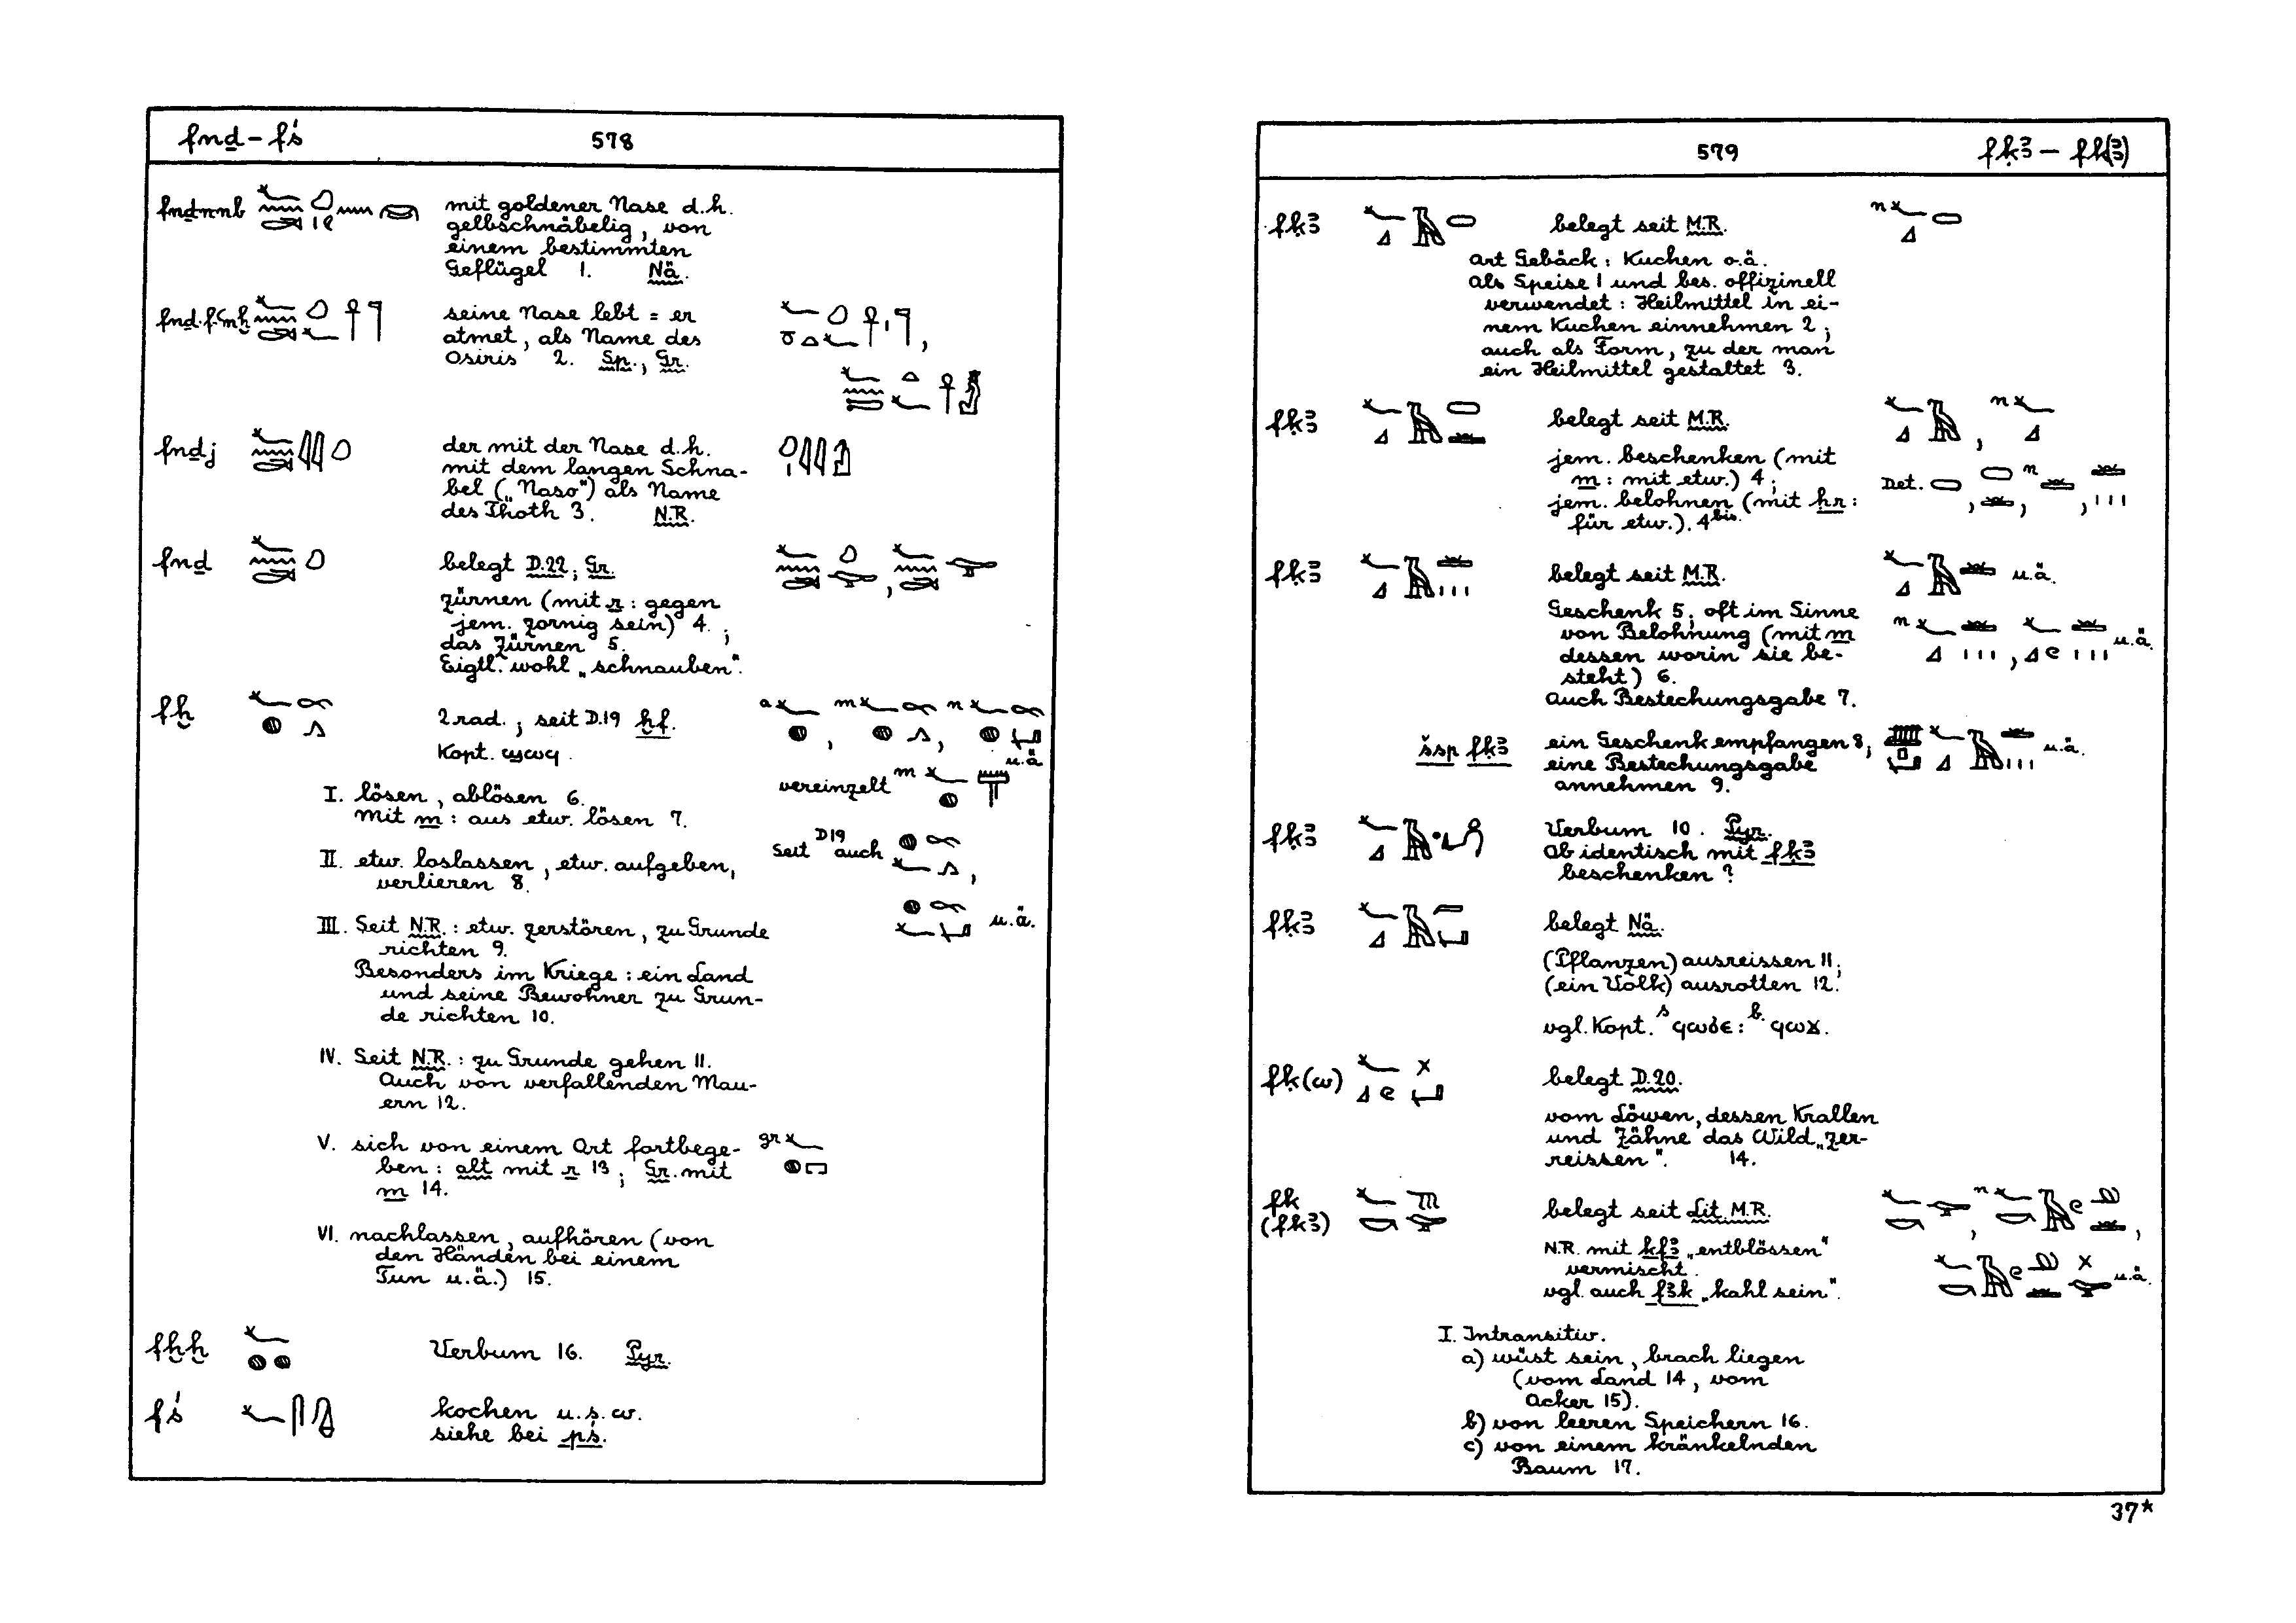 fnḏ – fś
578
fnḏnnb
mit goldener Nase d.h.
gelbschnäbelig, von
einem bestimmten
Geflügel 1. Nä.
fnḏ.f-ꜥnḫ
seine Nase lebt = er
atmet, als Name des
Osiris 2. Sp., Gr.
fnḏj
der mit der Nase d.h.
mit dem langen Schna-
bel („Naso“) als Name
des Thoth 3. N.R.
fnḏ
belegt D.22; Gr.
zürnen (mit r : gegen
jem. zornig sein) 4. ;
das Zürnen 5.
Eigtl. wohl „schnauben“.
fḫ
2 rad. ; seit D.19 ḫf.
Kopt. ϣωϥ.
a , m , n
u.ä
vereinzelt m
I. lösen, ablösen 6.
mit m : aus etw. lösen 7.
Seit D19 auch
II. etw. loslassen, etw. aufgeben,
verlieren 8.
u.ä.
III. Seit N.R. : etw. zerstören, zu Grunde
richten 9.
Besonders im Kriege : ein Land
und seine Bewohner zu Grun-
de richten 10.
IV. Seit N.R. : zu Grunde gehen 11.
Auch von verfallenden Mau-
ern 12.
V. sich von einem Ort fortbege-
ben : alt mit r 13 ; Gr. mit
m 14.
gr
VI. nachlassen, aufhören (von
den Händen bei einem
Tun u.ä.) 15.
fḫḫ
Verbum 16. Pyr.
fś
kochen u.s.w.
siehe bei pś.
579
fḳꜣ – fk(ꜣ)
fḳꜣ
belegt seit M.R.
n
Art Gebäck : Kuchen o.ä.
als Speise 1 und bes. offizinell
verwendet : Heilmittel in ei-
nem Kuchen einnehmen 2 ;
auch als Form, zu der man
ein Heilmittel gestaltet 3.
fḳꜣ
belegt seit M.R.
n
jem. beschenken (mit
m : mit etw.) 4 ;
jem. belohnen (mit ḥr :
für etw.). 4bis.
Det. , n , ,
fḳꜣ
belegt seit M.R.
u.ä.
Geschenk 5; oft im Sinne
von Belohnung (mit m
dessen worin sie be-
steht) 6.
Auch Bestechungsgabe 7.
n , u.ä.
šsp fḳꜣ
ein Geschenk empfangen 8;
eine Bestechungsgabe
annehmen 9.
u.ä.
fḳꜣ
Verbum 10. Pyr.
Ob identisch mit fḳꜣ
beschenken ?
fḳꜣ
belegt Nä.
(Pflanzen) ausreissen 11;
(ein Volk) ausrotten 12.
vgl. Kopt. s ϥωϭⲉ : b ϥωϫ.
fḳ(w)
belegt D.20.
vom Löwen, dessen Krallen
und Zähne das Wild „zer-
reissen“. 14.
fk
(fkꜣ)
belegt seit Lit. M.R.
N.R. mit kfꜣ „entblössen“
vermischt.
vgl. auch fꜣk „kahl sein“.
n
u.ä.
I. Intransitiv.
a) wüst sein, brach liegen
(vom Land 14, vom
Acker 15).
b) von leeren Speichern 16.
c) von einem kränkelnden
Baum 17.
37*